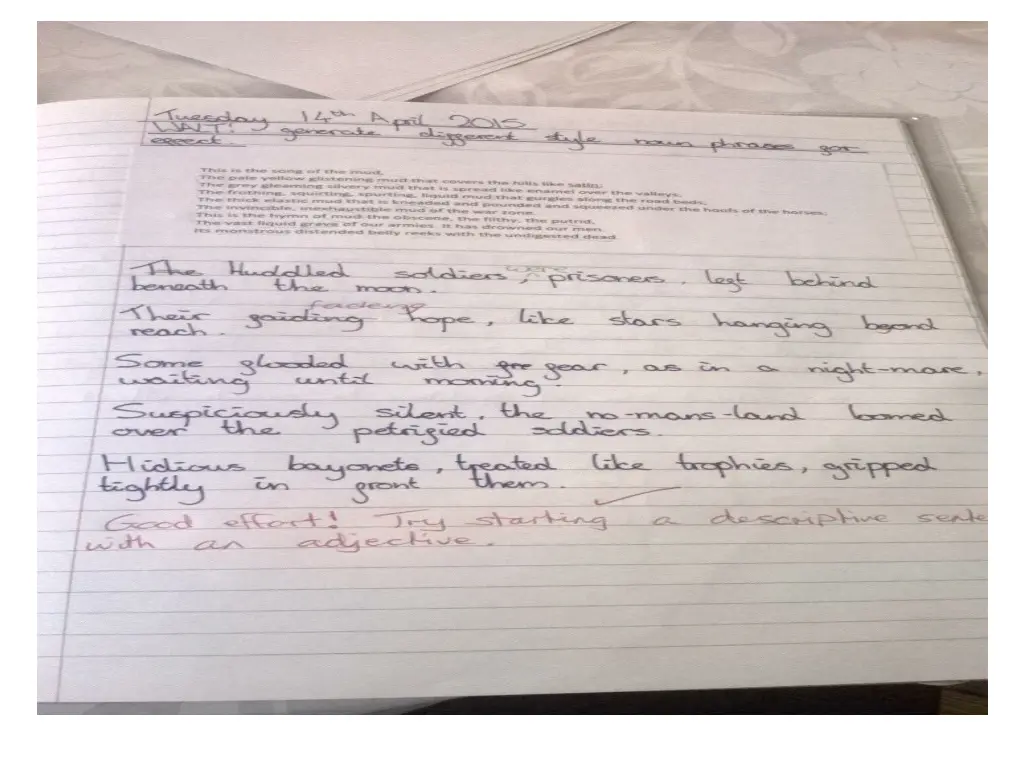 Tuesday 14th April 2015
WALT: generate different style noun phrases for
effect.
This is the song of the mud,
The pale yellow glistening mud that covers the hills like satin;
The grey gleaming silvery mud that is spread like enamel over the valleys;
The frothing, squirting, spurting, liquid mud that gurgles along the road beds;
The thick elastic mud that is kneaded and pounded and squeezed under the hoofs of the horses;
The invincible, inexhaustible mud of the war zone.
This is the hymn of mud the obscene, the filthy, the putrid,
The vast liquid grave of our armies. It has drowned our men.
Its monstrous distended belly reeks with the undigested dead.
were
The Huddled soldiers, prisoners. left behind
beneath the moon.
fadeing
Their gaiding hope, like stars hanging beyond
reach.
Some flooded with fear, as in a night-mare,
waiting until morning.
Suspiciously silent, the no-mans-land loomed
over the petrified soldiers.
Hidious bayonets, treated like trophies, gripped
tightly in front them.
Good effort! Try starting a descriptive sente
with an adjective.